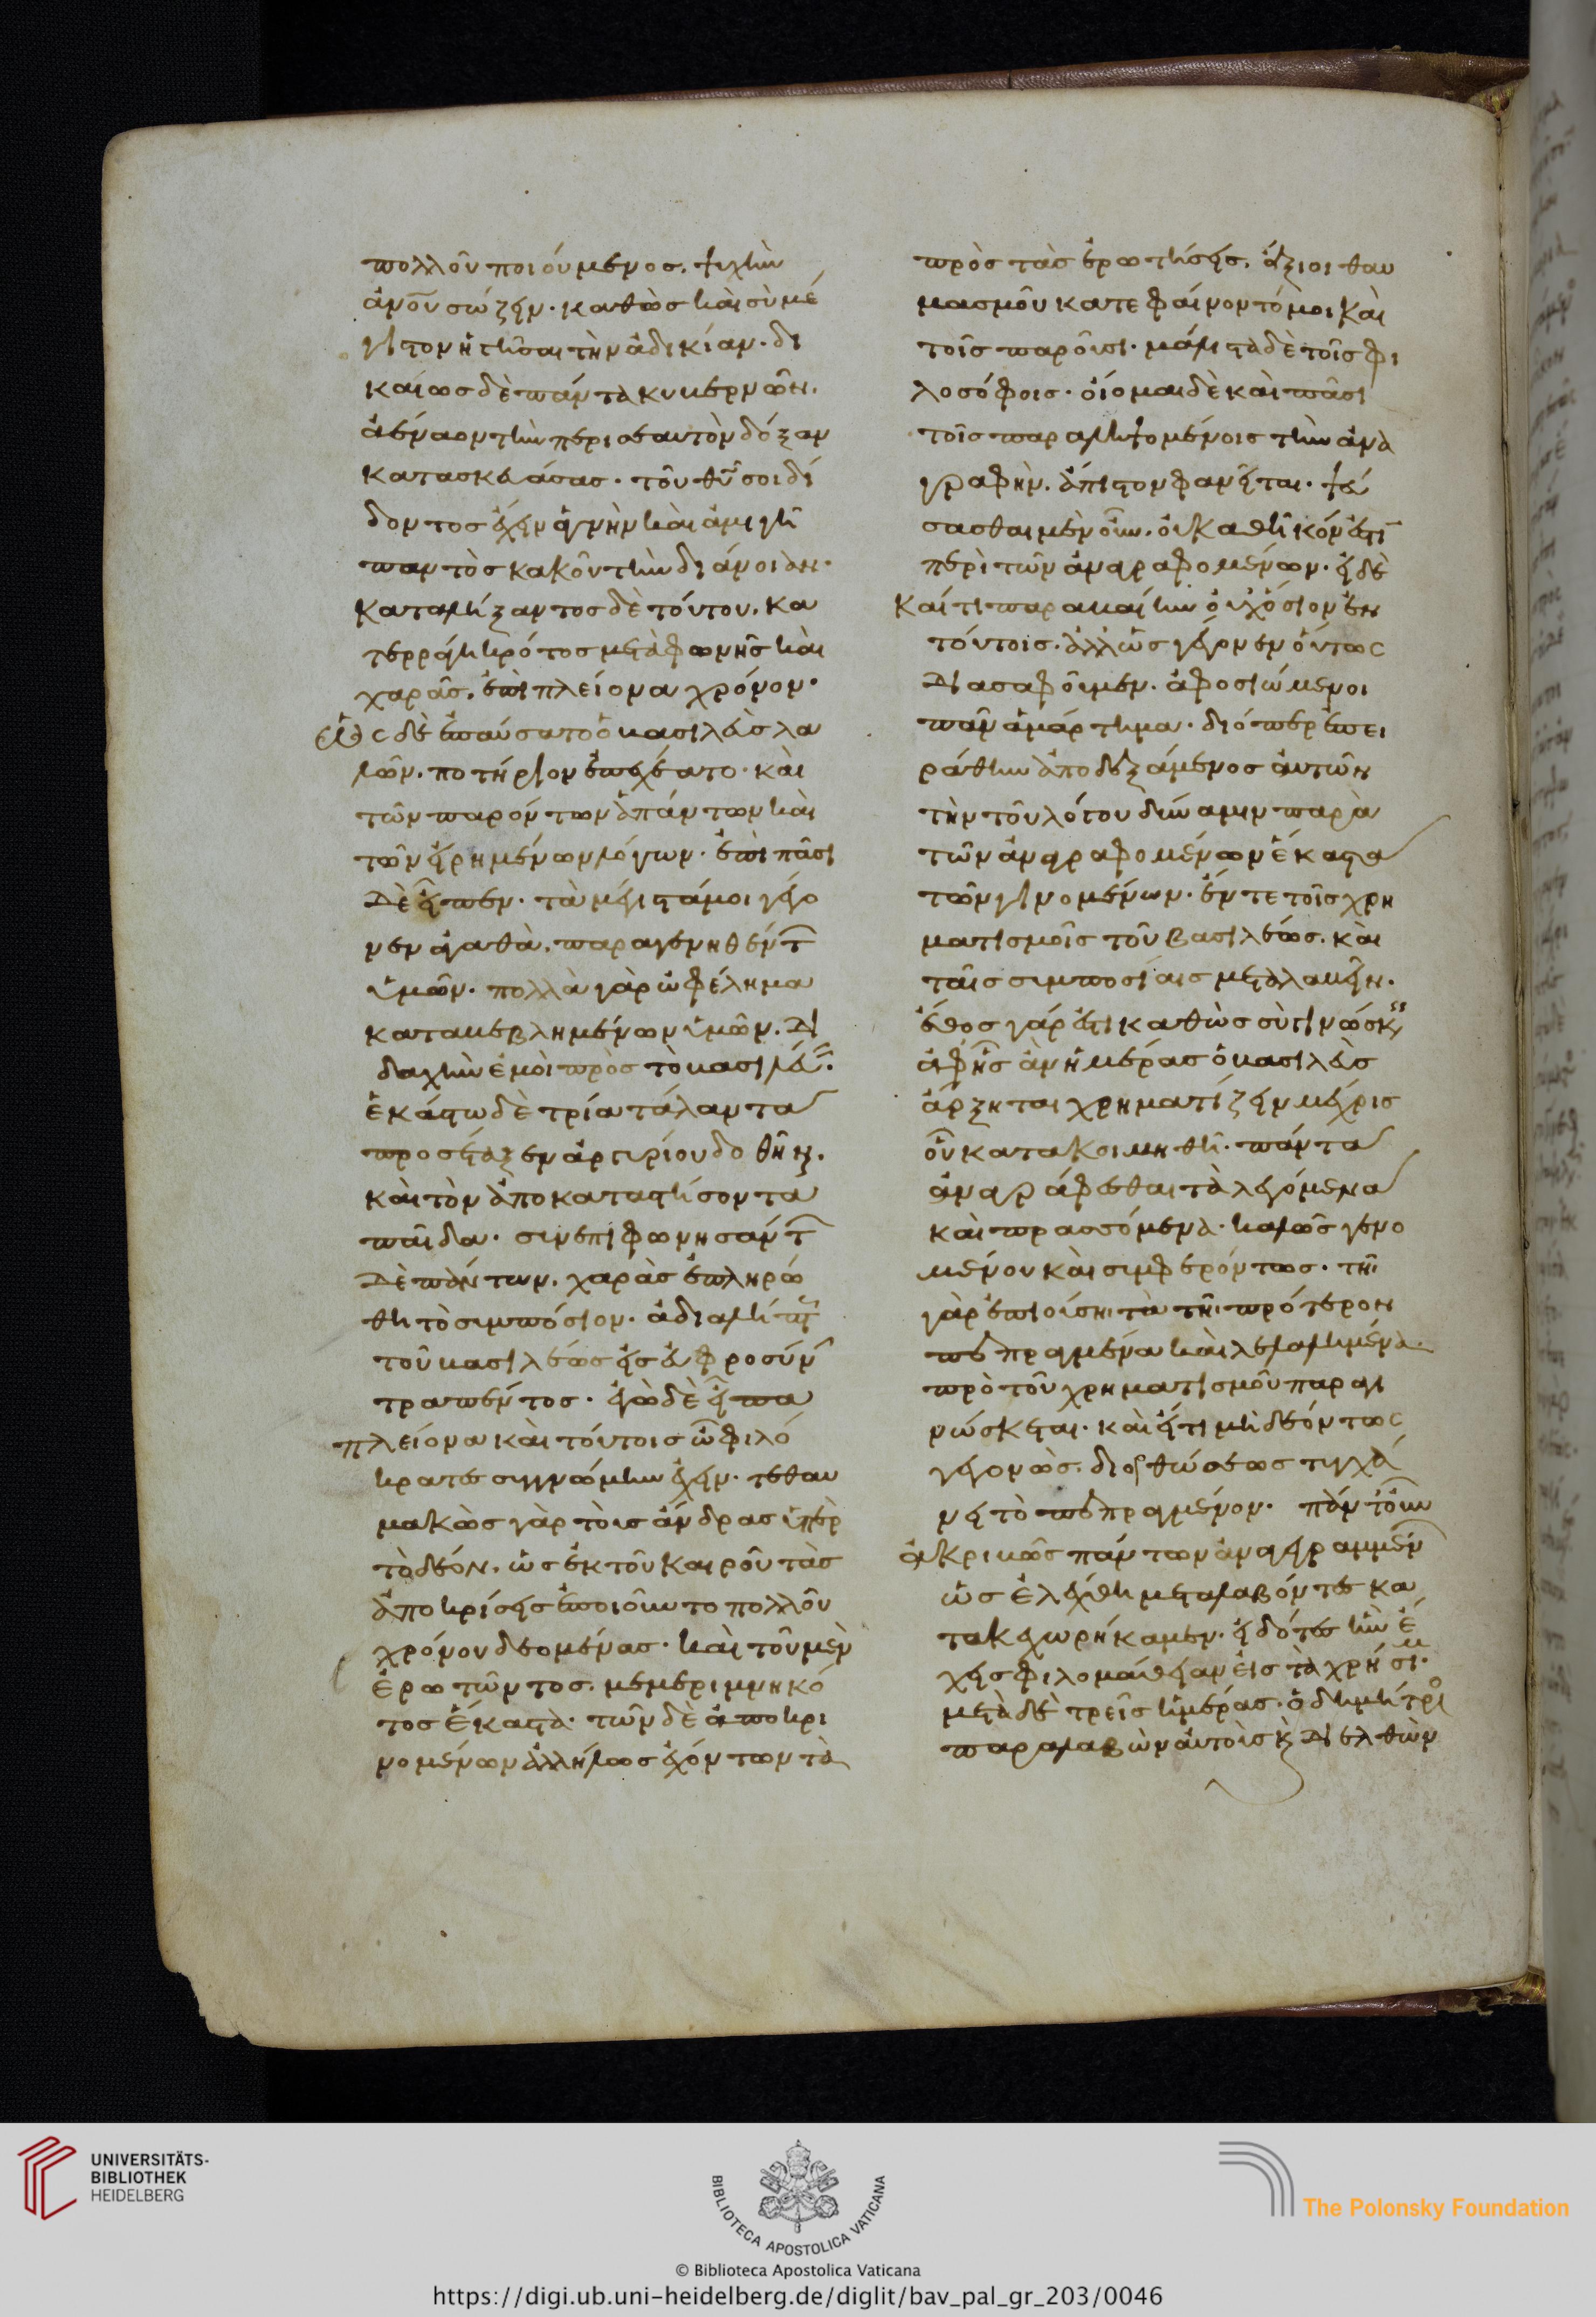 πολλοῦ ποιούμενος. ψυχὴν
ἀνου σώζειν. καθὼς καὶ σὺ μέ
γιστον ἡτῆσαι τὴν ἀδικίαν. δι
καίως δὲ πάντα κυβερνῶν.
ἀέναον τὴν περὶ σεαυτὸν δόξαν
κατασκευάσας. τοῦ θυ σοι δι
δόντος ἔχειν ἁγνὴν καὶ ἀμιγῆ
παντὸς κακοῦ τὴν διάνοιαν.
καταλήξαντος δὲ τούτου. κα
τερράγη κρότος μετὰ φωνῆς καὶ
χαρᾶς. ἐπὶ πλείονα χρόνον.
ὡς δὲ ἐπαύσατο ὁ βασιλεὺς λα
βῶν. ποτήριον ἐπεχέατο. καὶ
τῶν παρόντων ἁπάντων καὶ
τῶν εἰρημένων λόγων. ἐπὶ πᾶσι
δὲ εἶπεν. τὰ μέγιστά μοι γέγο
νεν ἀγαθὰ. παραγενηθέντ
ὑμῶν. πολλὰ γὰρ ὠφέλημα
καταβεβλημένων ὑμῶν. δι
δαχὴν ἐμοὶ πρὸς τὸ βασιλεύ.
ἑκάστω δὲ τρία τάλαντα
προσέταξεν ἀργυρίου δοθῆναι.
καὶ τὸν ἀποκαταστήσοντα
παῖδα. συνεπιφωνησάντ
δὲ πάντων. χαρὰς ἐπληρώ
θη τὸ συμπόσιον. ἀδιαλήπτ
τοῦ βασιλέως εἰς εὐφροσύν
τραπέντος. ἐγὼ δὲ εἶπα
πλείονα καὶ τούτοις ὦ φιλό
κρατες συγγνώμην ἔχειν. τεθαυ
μακὼς γὰρ τοὺς ἄνδρας ὑπὲρ
τὸ δέον. ὡς ἐκ τοῦ καιροῦ τὰς
ἀποκρίσεις ἐποιοῦντο πολλοῦ
χρόνου δεομένας. καὶ τοῦ μὲν
ἐρωτῶντος. μεμεριμνηκό
τος ἕκαστα. τῶν δὲ ἀποκρι
νομένων ἀλλήλως ἐχόντων τὰ
πρὸς τὰς ἐρωτήσεις. ἄξιοι θαυ
μασμοῦ κατεφαίνοντό μοι καὶ
τοῖς παροῦσι. μάλιστα δὲ τοῖς φι
λοσόφοις. οἴομαι δὲ καὶ πᾶσι
τοῖς παραληψομένοις τὴν ἀνα
γραφὴν. ἄπιστον φανεῖται. ψεύ
σασθαι μὲν οὖν. οὐ καθῆκόν ἐστι
περὶ τῶν ἀναγραφομένων. εἰ δὲ
καί τι παραβαίην οὐχ ὅσιον ἐν
τούτοις. ἀλλ ὡς γέγονεν οὕτως
διασαφοῦμεν. ἀφοσιώμενοι
πᾶν ἁμάρτημα. διόπερ ἐπει
ράθην ἀποδεξάμενος αὐτῶν
τὴν τοῦ λόγου δύναμιν παρὰ
τῶν ἀναγραφομένων ἕκαστα
τῶν γινομένων. ἔν τε τοῖς χρη
ματισμοῖς τοῦ βασιλέως. καὶ
ταῖς συμποσίαις μεταλαβεῖν.
ἔθος γάρ ἐστι καθὼς σὺ γινώσκεις
ἀφ ἧς ἂν ἡμέρας ὁ βασιλεὺς
ἄρξηται χρηματίζειν μέχρις
οὗ κατακοιμηθῆ. πάντα
ἀναγράφεσθαι τὰ λεγόμενα
καὶ πρασσόμενα. καλῶς γενο
μένου καὶ συμφερόντως. τῆ
γὰρ ἐπιούση τὰ τῆ πρότερον
πεπραγμένα καὶ λελαλημένα.
πρὸ τοῦ χρηματισμοῦ παραγι
νώσκεται. καὶ εἴ τι μὴ δεόντως
γέγονὼς. διορθώσεως τυγχά
νει τὸ πεπραγμένον. πάντ οὖν
ἀκριβῶς πάντων ἀναγεγραμμέν
ὡς ἐλέχθη μεταλαβόντες κα
τακεχωρήκαμεν. εἰδότες ἣν ἔ
χεις φιλομάθειαν εἰς τὰ χρήσιμ.
μετὰ δὲ τρεῖς ἡμέρας. ὁ δημήτριο
παραλαβὼν αὐτοὺς κ διελθὼν
UNIVERSITÄTS-
BIBLIOTHEK
HEIDELBERG
BIBLIOTECA APOSTOLICA VATICANA
The Polonsky Foundation
© Biblioteca Apostolica Vaticana
https://digi.ub.uni-heidelberg.de/diglit/bav_pal_gr_203/0046